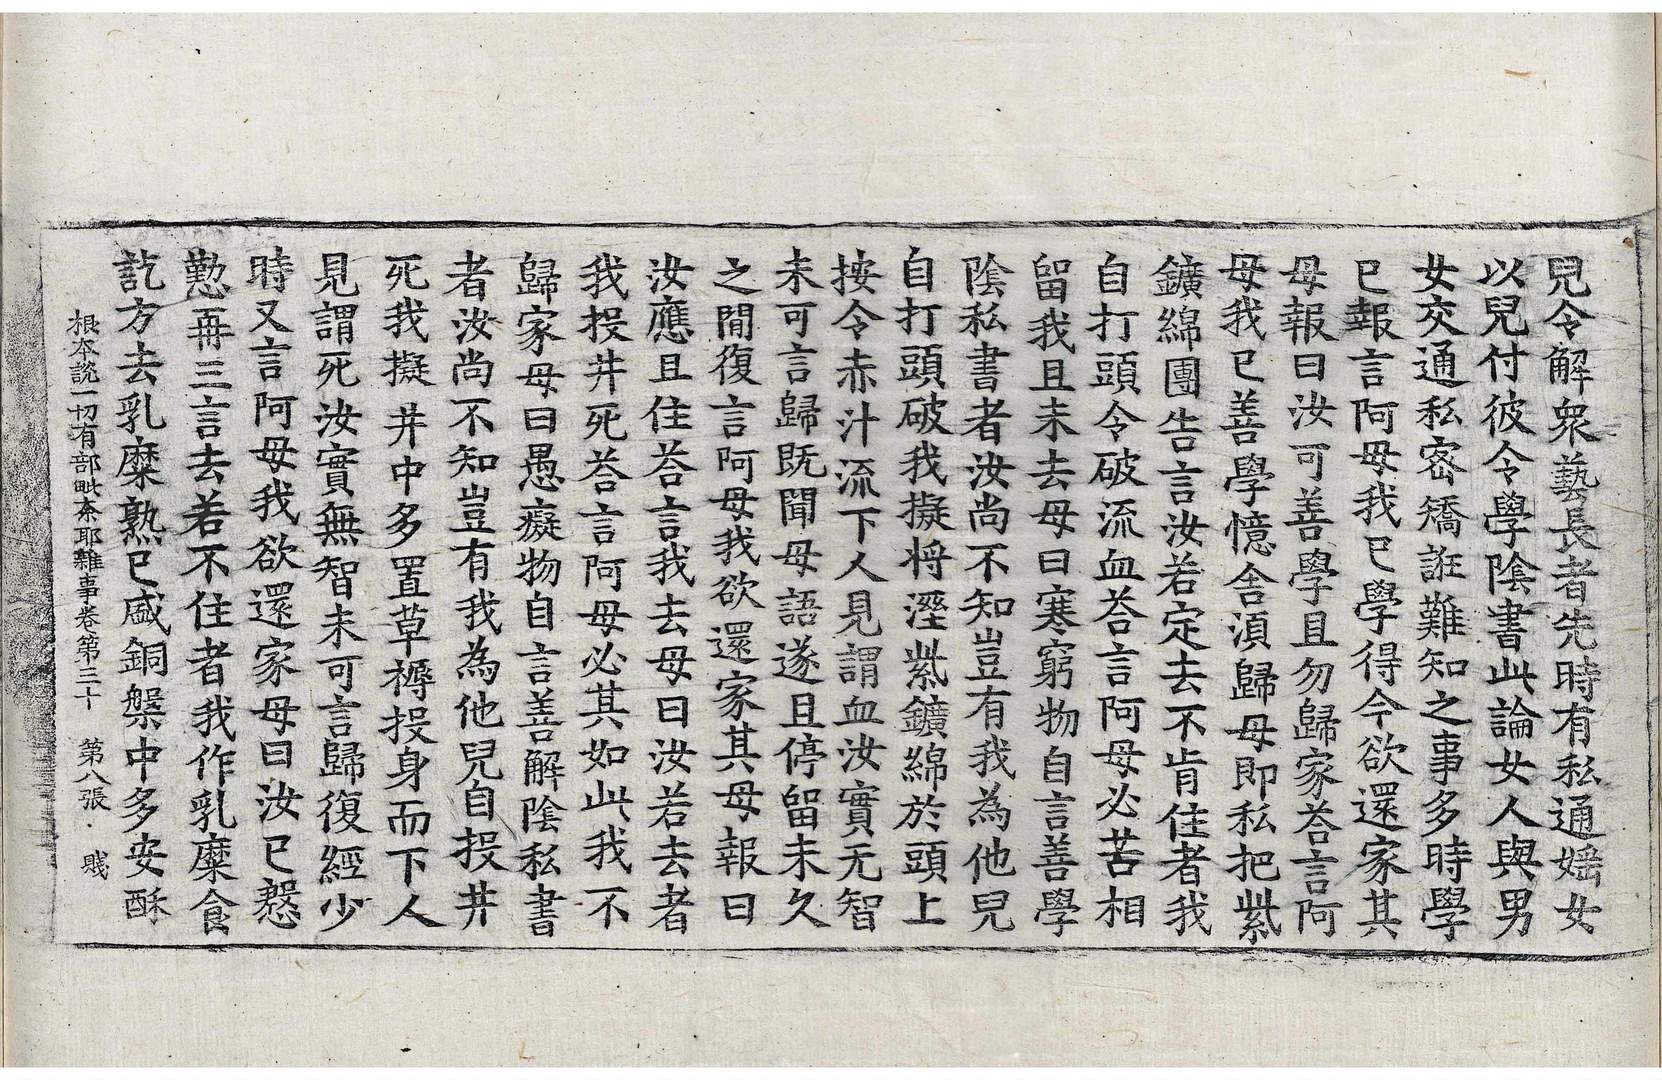 兒令解衆藝長者先時有私通婬女
以兒付彼令學陰書此論女人與男
女交通私密矯誑難知之事多時學
已報言阿母我已學得今欲還家其
母報曰汝可善學且勿歸家荅言阿
母我已善學憶舍湏歸母即私把紫
鑛綿團告言汝若定去不肯住者我
自打頭令破流血荅言阿母必苦相
留我且未去母曰寒窮物自言善學
陰私書者汝尚不知豈有我為他兒
自打頭破我擬將溼紫鑛綿於頭上
按令赤汁流下人見謂血汝實无智
未可言歸既聞母語遂且停留未久
之間復言阿母我欲還家其母報曰
汝應且住荅言我去母曰汝若去者
我投井死荅言阿母必其如此我不
歸家母曰愚癡物自言善解陰私書
者汝尚不知豈有我為他兒自投井
死我擬井中多置草褥投身而下人
見謂死汝實無智未可言歸復經少
時又言阿母我欲還家母曰汝已慇
懃再三言去若不住者我作乳糜食
訖方去乳糜熟已盛銅槃中多安酥
根本說一切有部毗柰耶雜事卷第三十 第八張 賤